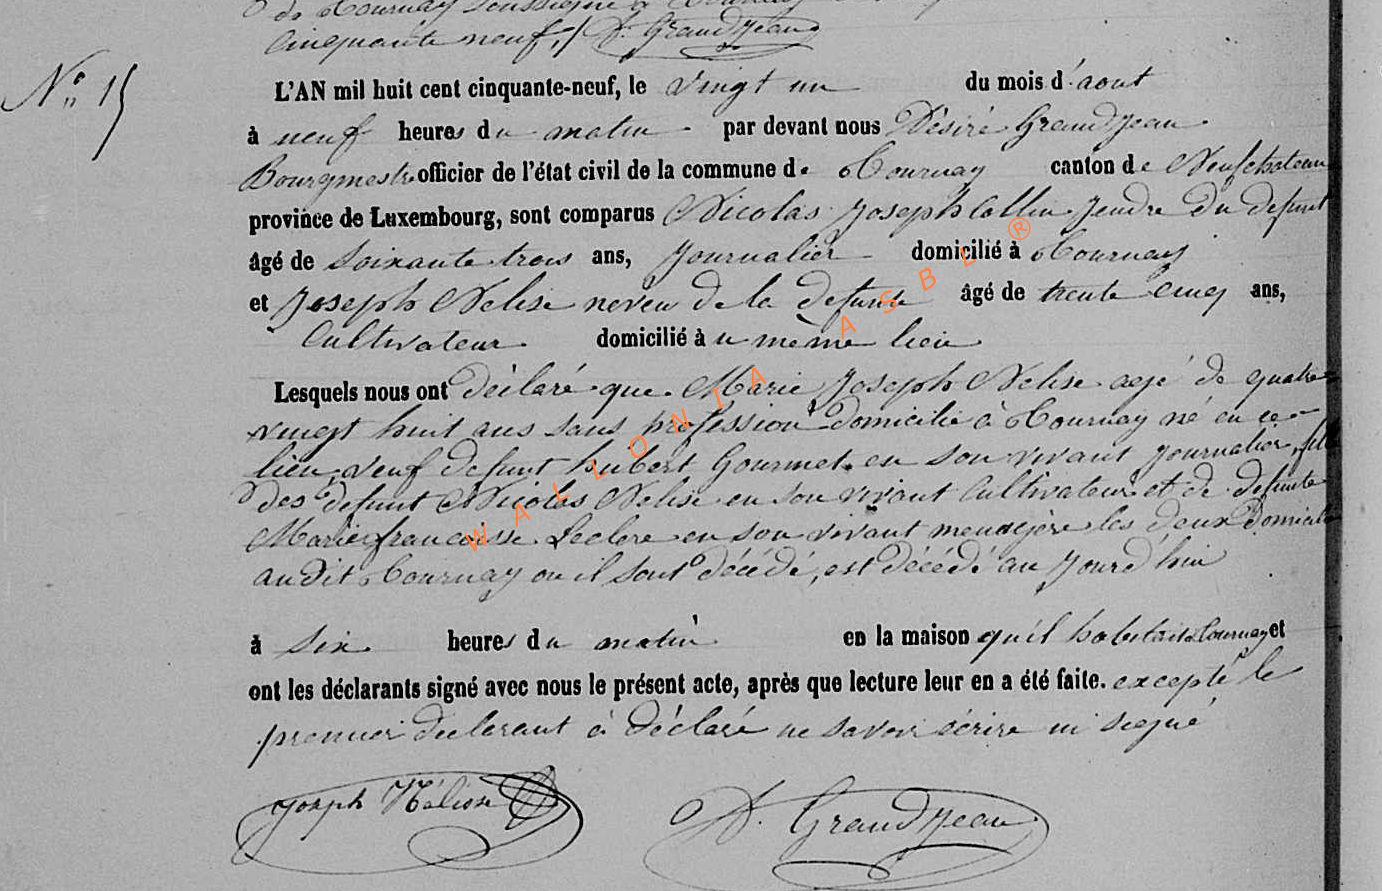 de Tournay soussigné à
Cinquante neuf,/ D. Grandjean
N° 15
L'AN mil huit cent cinquante-neuf, le vingt un du mois d'aout
à neuf heures du matin par devant nous Désiré Grandjean
Bourgmestre officier de l'état civil de la commune de Tournay canton de Neufchateau
province de Luxembourg, sont comparus Nicolas Joseph Collin jendre du defunt
âgé de soixante trois ans, journalier domicilié à Tournay
et Joseph Nelise neveu de la defunte âgé de trente cinq ans,
Cultivateur domicilié à u même lieu
Lesquels nous ont déclaré que Marie Joseph Nelise agé de quatre
vingt huit ans sans profession domicilié à Tournay né en ce
lieu, veuf defunt hubert Gourmet en son vivant journalier, fille
des defunt Nicolas Nelise en son vivant Cultivateur et de defunte
Marie francoisse Leclere en son vivant menagère les deux domicilié
audit Tournay ou il sont décédé, est décédé au jourd'hui
à six heures du matin en la maison qu'il habitait à Tournay et
ont les déclarants signé avec nous le présent acte, après que lecture leur en a été faite. excepté le
premier declerant à déclaré ne savoir écrire ni signé
Joseph Nélisse D. Grandjean
WALLONIA ASBL ®